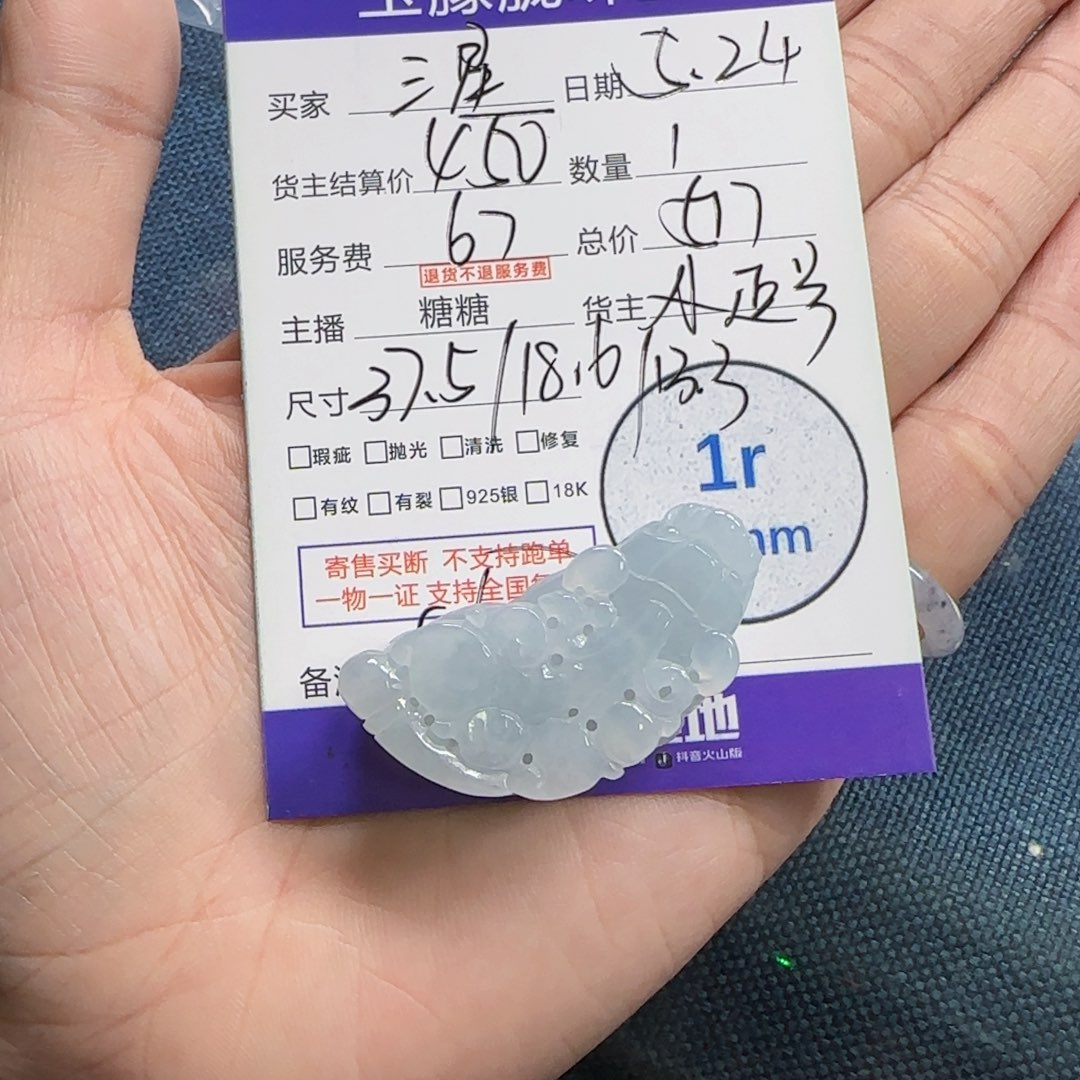 买家 三星 日期 5.24
货主结算价 450 数量 1
服务费 67 总价 517
退货不退服务费
主播 糖糖 货主 A 正号
尺寸 37.5/18.6/13.3
□瑕疵 □抛光 □清洗 □修复
□有纹 □有裂 □925银 □18K
1r
mm
寄售买断 不支持跑单
一物一证 支持全国
备
地
抖音火山版